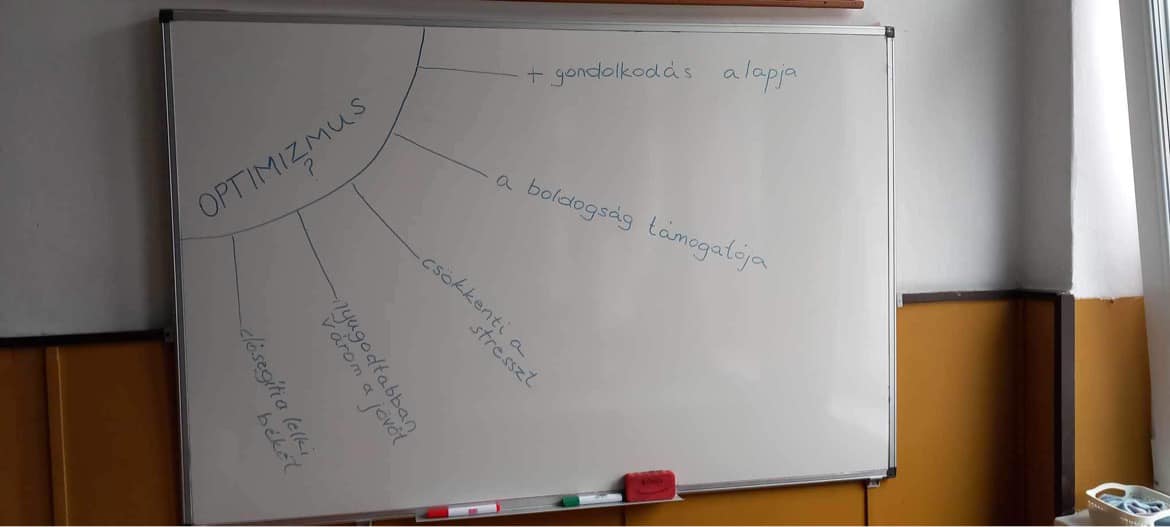 OPTIMIZMUS
?
+ gondolkodás alapja
a boldogság támogatója
csökkenti a
stresszt
nyugodtabban
várom a jövőt
elősegíti a lelki
békét